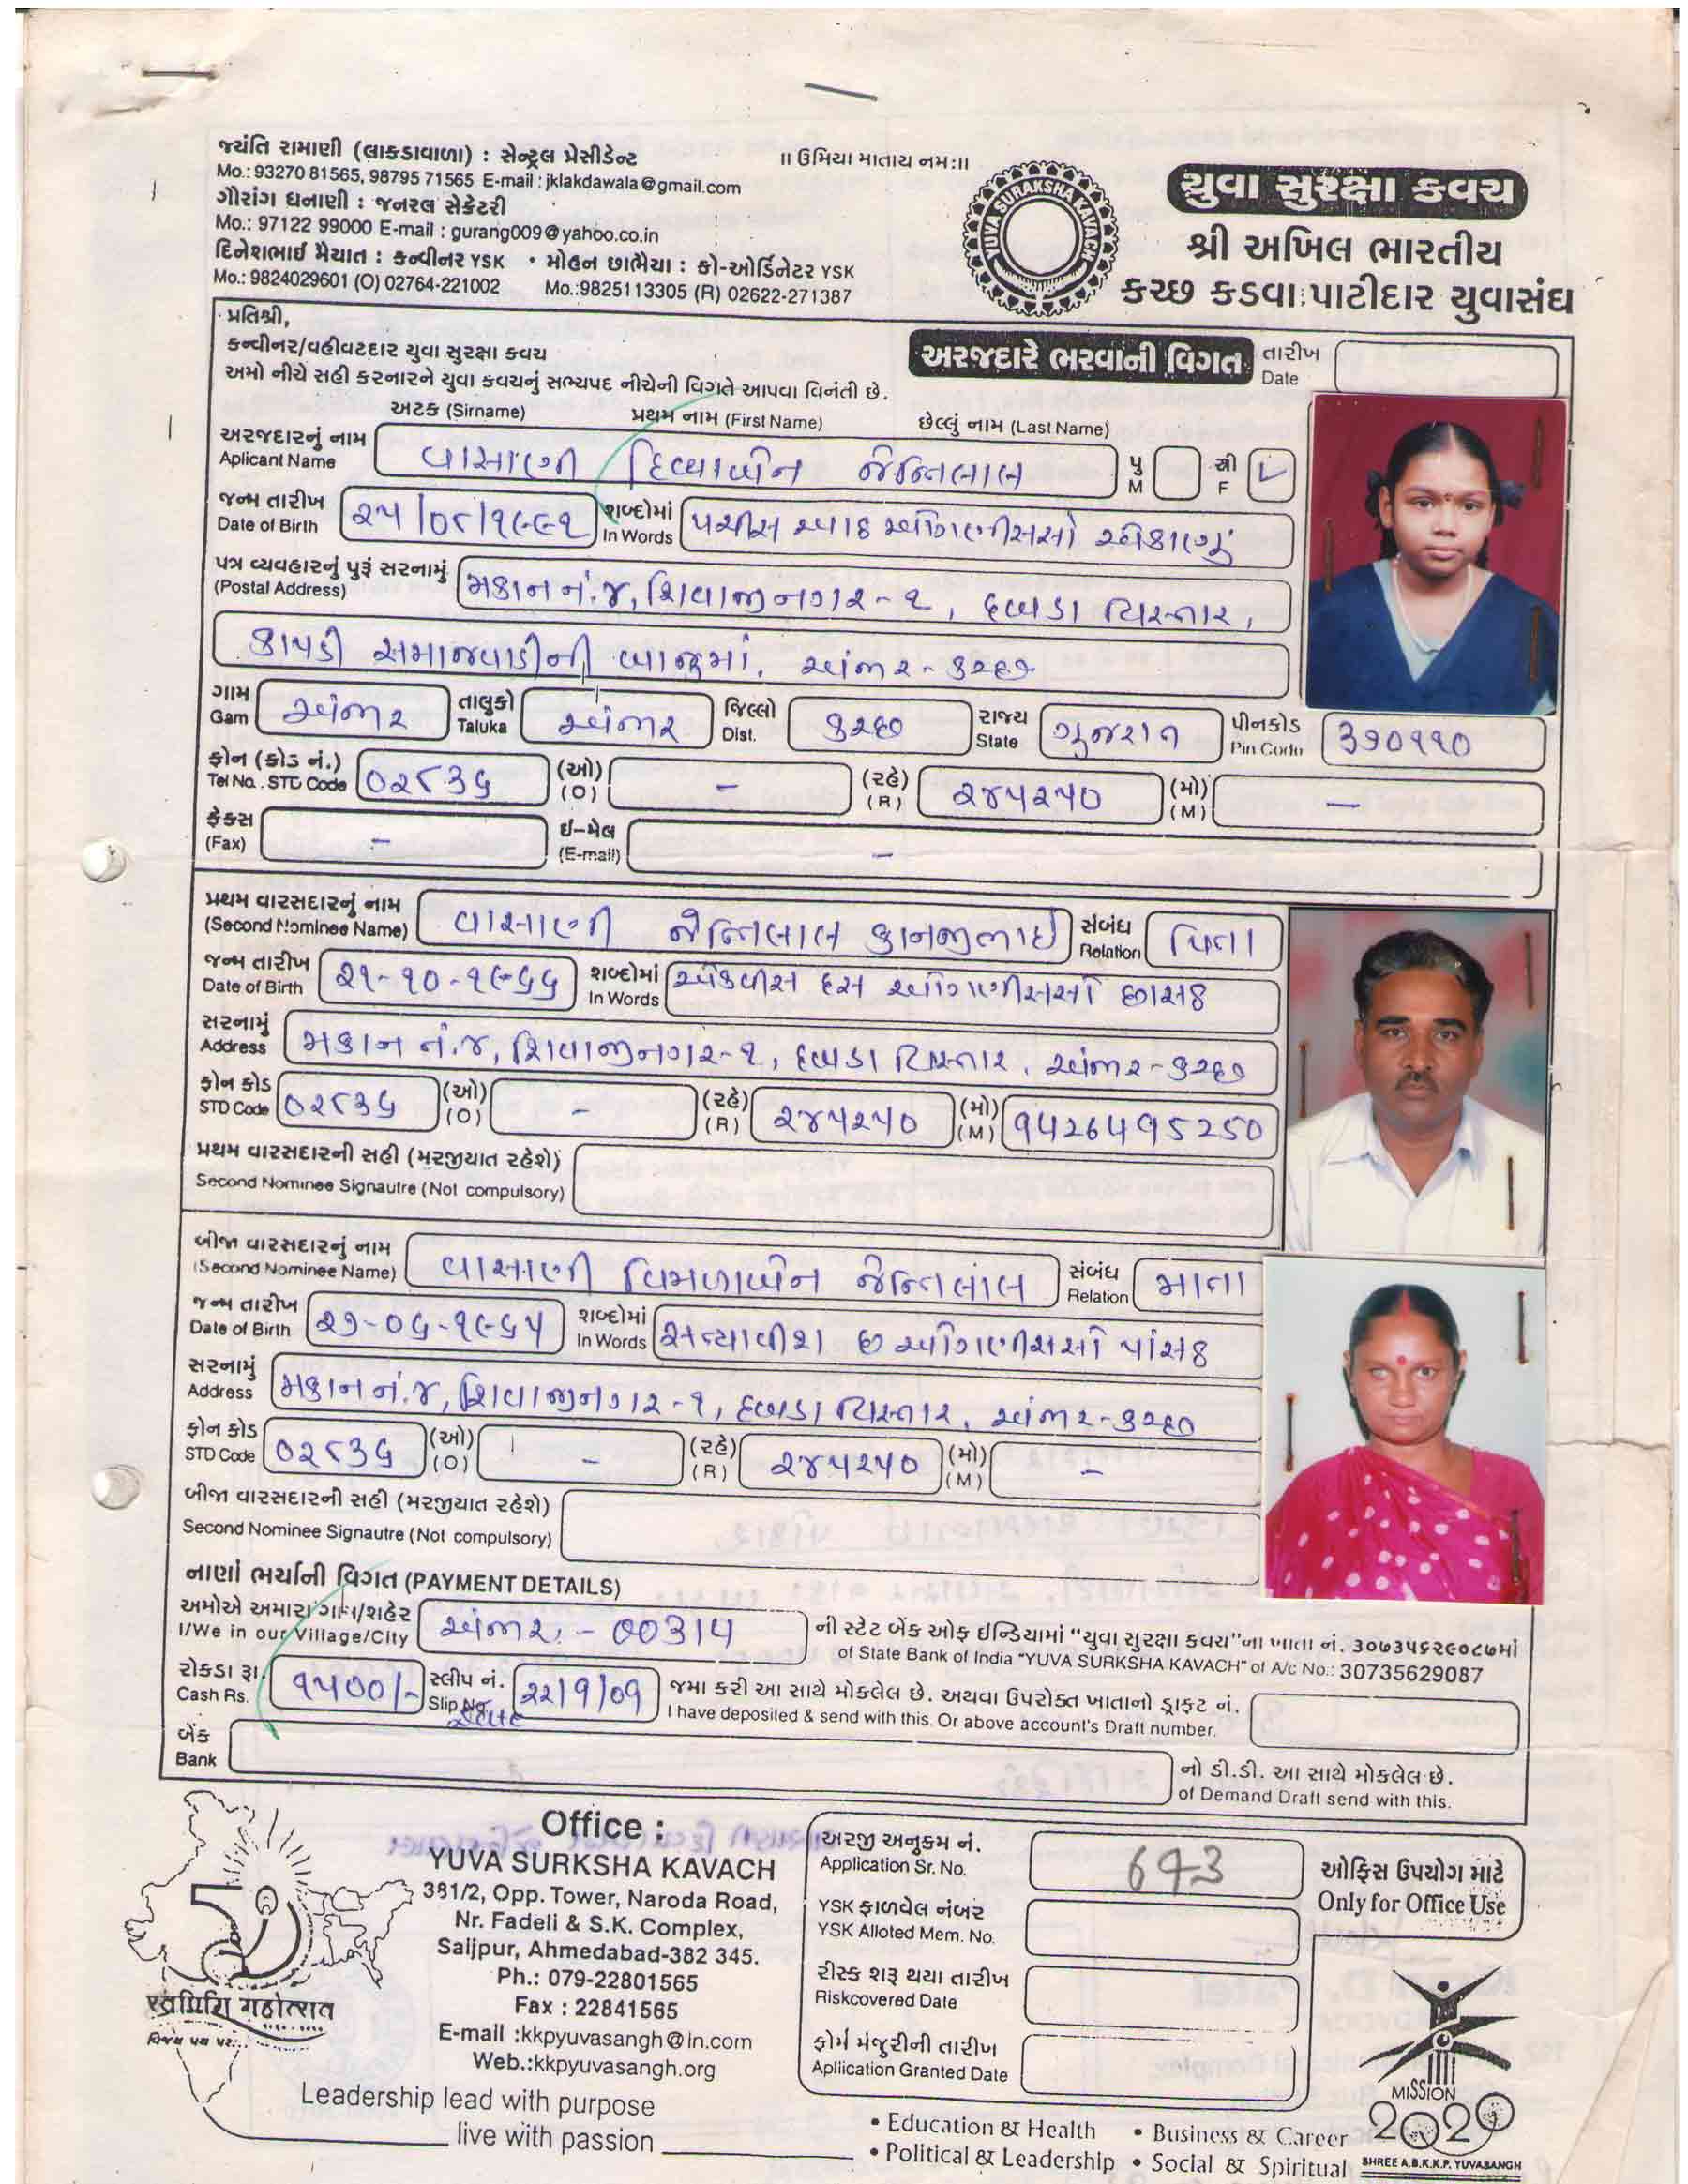 જયંતિ રામાણી (લાકડાવાળા) : સેન્ટ્રલ પ્રેસીડેન્ટ
Mo.: 93270 81565, 98795 71565 E-mail : jklakdawala@gmail.com
ગૌરાંગ ધનાણી : જનરલ સેક્રેટરી
Mo.: 97122 99000 E-mail : gurang009@yahoo.co.in
દિનેશભાઈ મૈયાત : કન્વીનર YSK • મોહન છાભૈયા : કો-ઓર્ડિનેટર YSK
Mo.: 9824029601 (O) 02764-221002 Mo.:9825113305 (R) 02622-271387
॥ ઉમિયા માતાય નમ:॥
YUVA SURAKSHA KAVACH
યુવા સુરક્ષા કવચ
શ્રી અખિલ ભારતીય
કચ્છ કડવા પાટીદાર યુવાસંઘ
પ્રતિશ્રી,
કન્વીનર/વહીવટદાર યુવા સુરક્ષા કવચ
અમો નીચે સહી કરનારને યુવા કવચનું સભ્યપદ નીચેની વિગતે આપવા વિનંતી છે.
અરજદારે ભરવાની વિગત
તારીખ
Date
અટક (Sirname) પ્રથમ નામ (First Name) છેલ્લું નામ (Last Name)
અરજદારનું નામ
Aplicant Name
વાસાણી દિવ્યાબેન જેન્તિલાલ
પુ
M
સ્ત્રી
F
જન્મ તારીખ
Date of Birth
૨૫/૦૮/૧૯૯૧
શબ્દોમાં
In Words
પચીસ આઠ ઓગણીસસો એકાણું
પત્ર વ્યવહારનું પુરૂં સરનામું
(Postal Address)
મકાન નં.૪, શિવાજીનગર-૧, દબડા વિસ્તાર,
કાપડી સમાજવાડીની બાજુમાં. અંજાર-કચ્છ
ગામ
Gam
અંજાર
તાલુકો
Taluka
અંજાર
જિલ્લો
Dist.
કચ્છ
રાજ્ય
State
ગુજરાત
પીનકોડ
Pin Code
૩૭૦૧૧૦
ફોન (કોડ નં.)
Tel No. STD Code
૦૨૮૩૬
(ઓ)
(O)
-
(રહે)
(R)
૨૪૫૨૫૦
(મો)
(M)
-
ફેક્સ
(Fax)
-
ઈ-મેલ
(E-mail)
-
પ્રથમ વારસદારનું નામ
(Second Nominee Name)
વાસાણી જેન્તિલાલ કાનજીભાઈ
સંબંધ
Relation
પિતા
જન્મ તારીખ
Date of Birth
૨૧-૧૦-૧૯૬૬
શબ્દોમાં
In Words
એકવીસ દસ ઓગણીસસો છાસઠ
સરનામું
Address
મકાન નં.૪, શિવાજીનગર-૧, દબડા વિસ્તાર. અંજાર-કચ્છ
ફોન કોડ
STD Code
૦૨૮૩૬
(ઓ)
(O)
-
(રહે)
(R)
૨૪૫૨૫૦
(મો)
(M)
9426495250
પ્રથમ વારસદારની સહી (મરજીયાત રહેશે)
Second Nominee Signautre (Not compulsory)
બીજા વારસદારનું નામ
(Second Nominee Name)
વાસાણી વિમળાબેન જેન્તિલાલ
સંબંધ
Relation
માતા
જન્મ તારીખ
Date of Birth
૨૭-૦૬-૧૯૬૫
શબ્દોમાં
In Words
સત્યાવીશ છ ઓગણીસસો પાંસઠ
સરનામું
Address
મકાન નં.૪, શિવાજીનગર-૧, દબડા વિસ્તાર, અંજાર-કચ્છ
ફોન કોડ
STD Code
૦૨૮૩૬
(ઓ)
(O)
-
(રહે)
(R)
૨૪૫૨૫૦
(મો)
(M)
-
બીજા વારસદારની સહી (મરજીયાત રહેશે)
Second Nominee Signautre (Not compulsory)
નાણાં ભર્યાની વિગત (PAYMENT DETAILS)
અમોએ અમારા ગામ/શહેર
I/We in our Village/City
અંજાર - 00314
ની સ્ટેટ બેંક ઓફ ઈન્ડિયામાં "યુવા સુરક્ષા કવચ"ના ખાતા નં. ૩૦૭૩૫૬૨૯૦૮૭માં
of State Bank of India "YUVA SURKSHA KAVACH" of A/c No.: 30735629087
રોકડા રૂા.
Cash Rs.
૧૫૦૦/-
સ્લીપ નં.
Slip No.
Date
22/9/09
જમા કરી આ સાથે મોકલેલ છે. અથવા ઉપરોક્ત ખાતાનો ડ્રાફ્ટ નં.
I have deposited & send with this. Or above account's Draft number.
બેંક
Bank
નો ડી.ડી. આ સાથે મોકલેલ છે.
of Demand Draft send with this.
Office :
YUVA SURKSHA KAVACH
381/2, Opp. Tower, Naroda Road,
Nr. Fadeli & S.K. Complex,
Saijpur, Ahmedabad-382 345.
Ph.: 079-22801565
Fax : 22841565
E-mail :kkpyuvasangh@in.com
Web.:kkpyuvasangh.org
Leadership lead with purpose
live with passion
અરજી અનુક્રમ નં.
Application Sr. No.
643
YSK ફાળવેલ નંબર
YSK Alloted Mem. No.
રીસ્ક શરૂ થયા તારીખ
Riskcovered Date
ફોર્મ મંજુરીની તારીખ
Apliication Granted Date
ઓફિસ ઉપયોગ માટે
Only for Office Use
• Education & Health • Business & Career
• Political & Leadership • Social & Spiritual
MISSION
2020
SHREE A.B.K.K.P. YUVASANGH